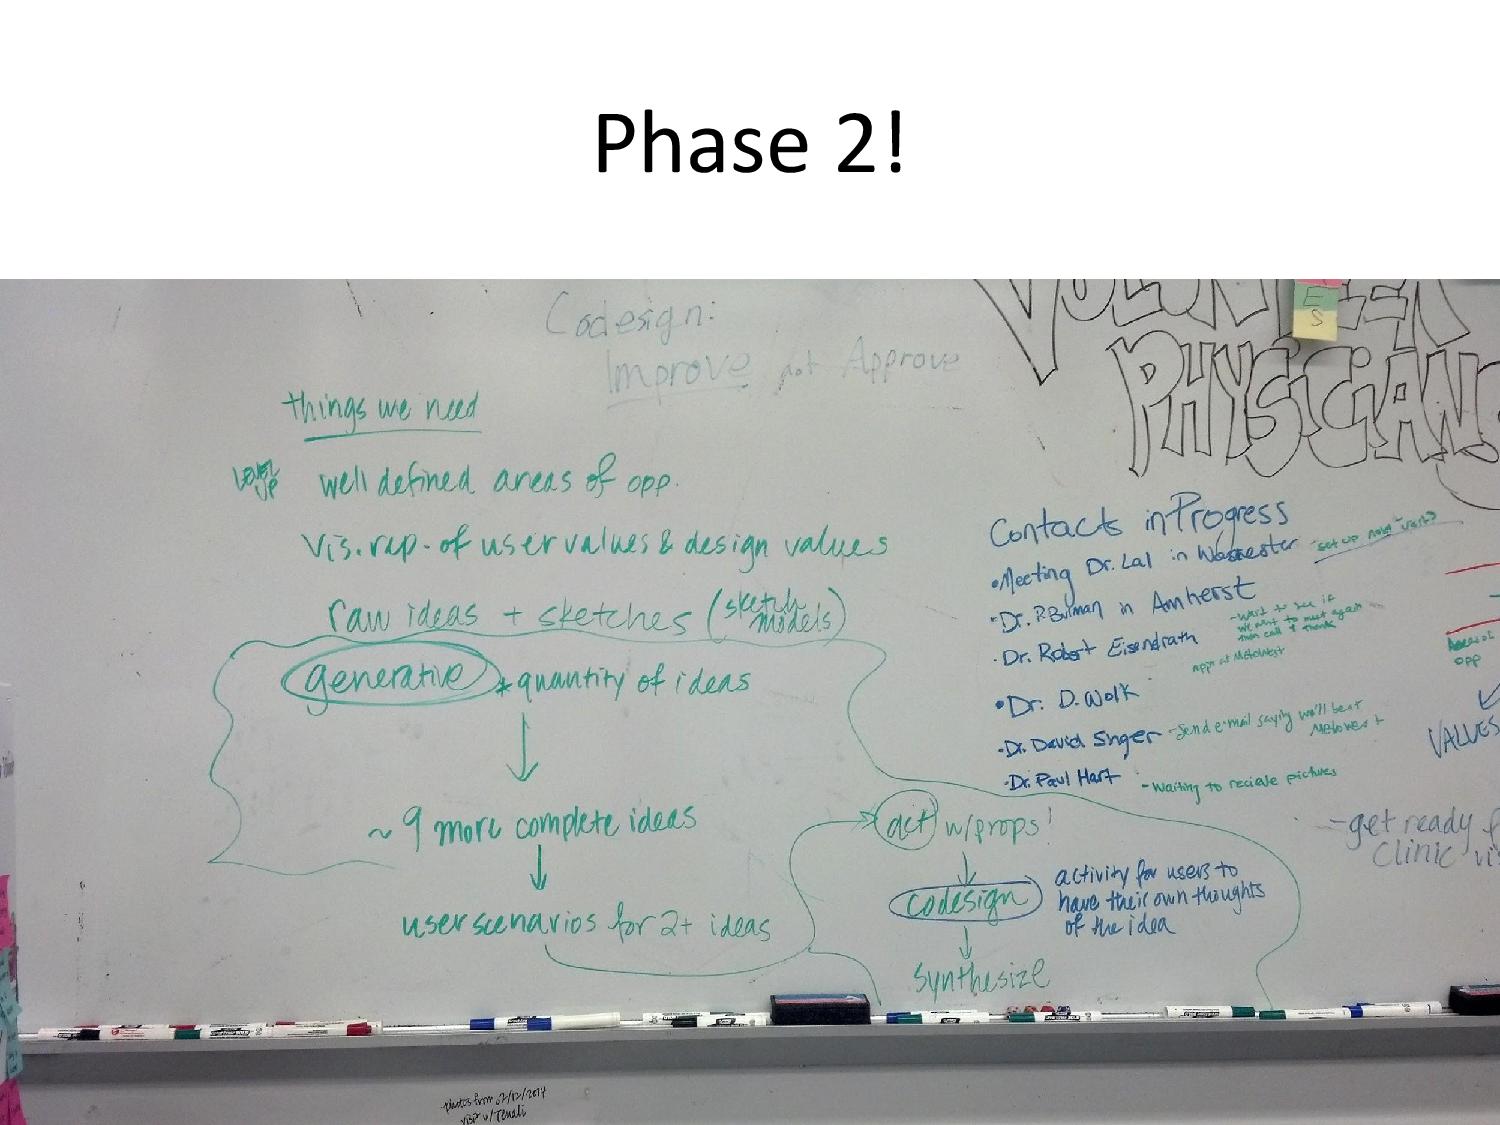 Phase 2!
Codesign:
Improve not Approve
things we need
LEVEL UP well defined areas of opp.
Vis. rep. of user values & design values
raw ideas + sketches (sketch models)
generative * quantity of ideas
~ 9 more complete ideas
user scenarios for 2+ ideas
act w/props!
codesign
activity for users to
have their own thoughts
of the idea
Synthesize
VOLUNTEER
PHYSICIAN
E
S
Contacts in Progress
•Meeting Dr. Lal in -set up now
•Dr. P. in Amherst
-want to see if
we want to meet again
then call & thank
•Dr. Robert Eisendrath
appt at MetoWest
•Dr. D. Wolk
•Dr. David Singer -Send e-mail saying we'll be at
MetoWest
•Dr. Paul Hart -Waiting to recieve pictures
Areas of
opp
VALUES
-get ready
clinic
photos from 02/12/2014
visit w/